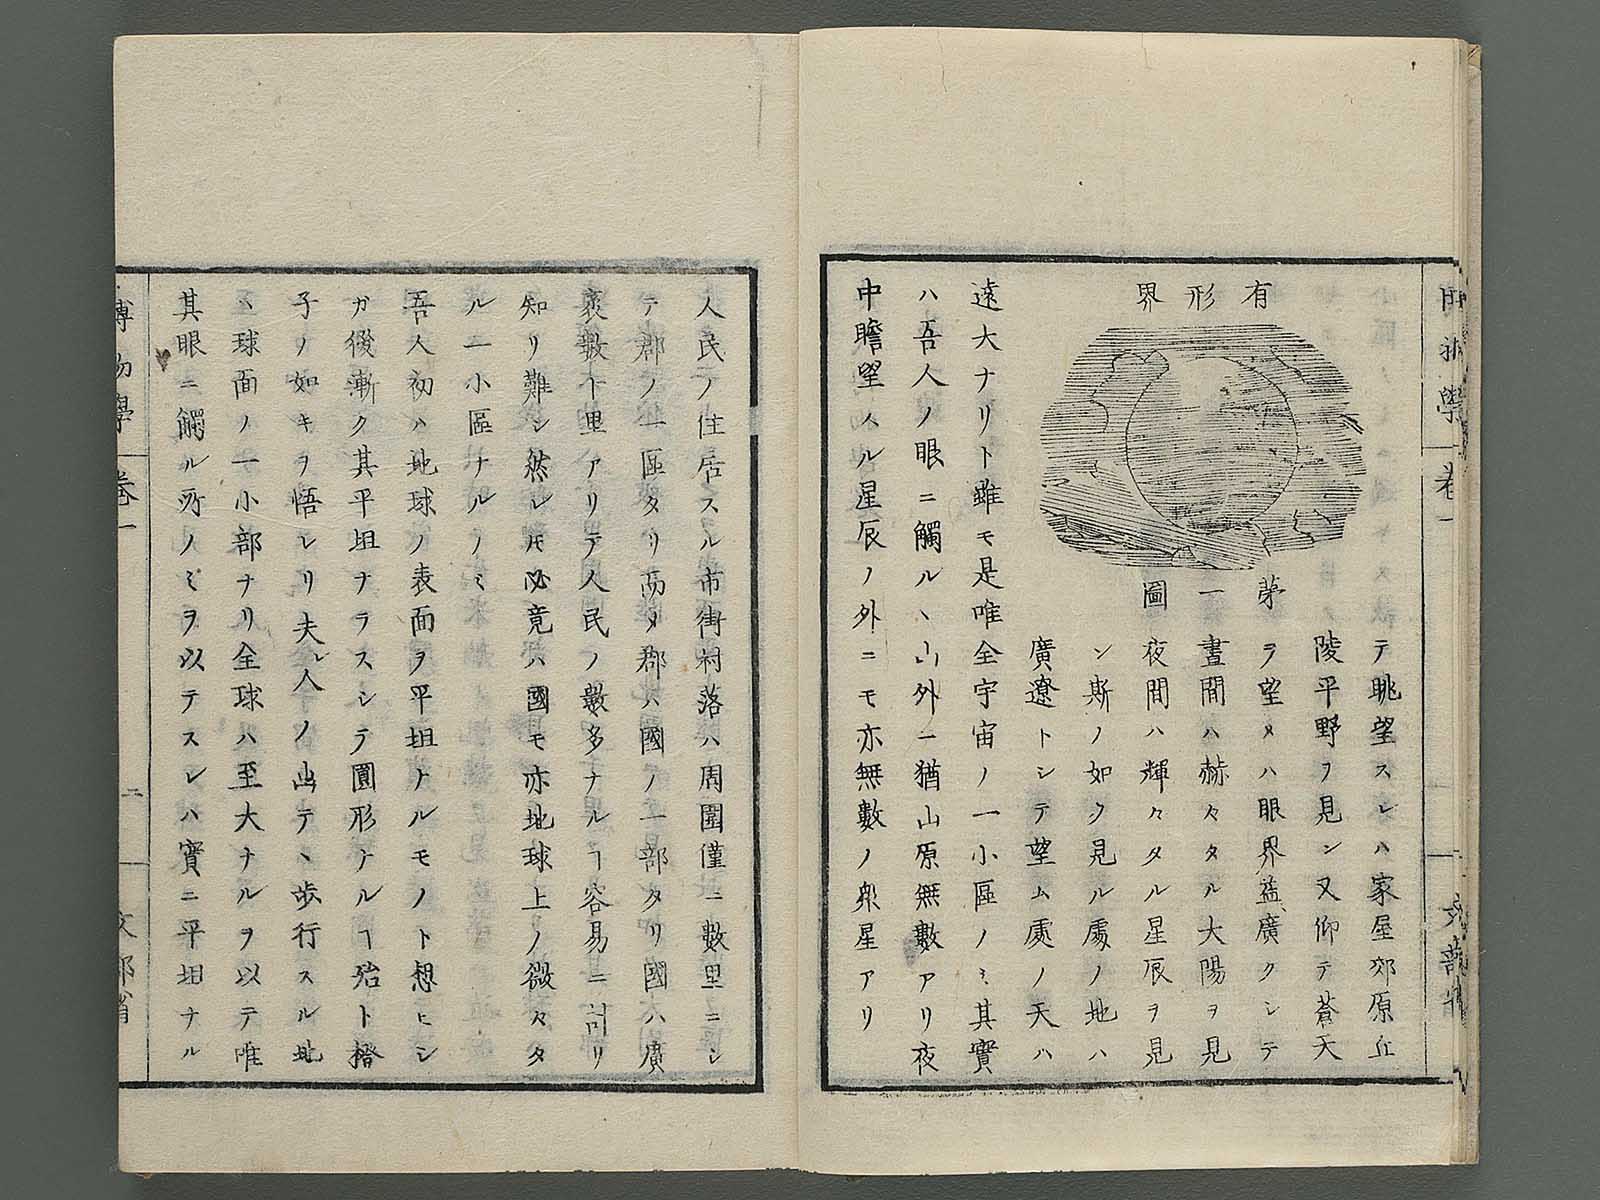 有形界
第一圖
テ眺望スレハ家屋郊原丘
陵平野ヲ見ン又仰テ蒼天
ヲ望メハ眼界益廣クシテ
晝間ハ赫々タル大陽ヲ見
夜間ハ輝々タル星辰ヲ見
ン斯ノ如ク見ル處ノ地ハ
廣遼トシテ望ム處ノ天ハ
遠大ナリト雖モ是唯全宇宙ノ一小區ノミ其實
ハ吾人ノ眼ニ觸ルヽ山外ニ猶山原無數アリ夜
中瞻望スル星辰ノ外ニモ亦無數ノ衆星アリ
人民ノ住居スル市街村落ハ周圍僅ニ數里ニシ
テ郡ノ一區タリ而メ郡ハ國ノ一部タリ國ハ廣
袤數千里アリテ人民ノ數多ナルヿ容易ニ計リ
知リ難シ然レ𪜈必竟ハ國モ亦地球上ノ微々タ
ル一小區ナルノミ
吾人初ハ地球ノ表面ヲ平坦ナルモノト想ヒシ
カ後漸ク其平坦ナラスシテ圓形ナルヿ殆ト橙
子ノ如キヲ悟レリ夫レ人ノ出テヽ歩行スル地
ハ球面ノ一小部ナリ全球ハ至大ナルヲ以テ唯
其眼ニ觸ル所ノミヲ以テスレハ實ニ平坦ナル
博物學 卷一 二 文部省